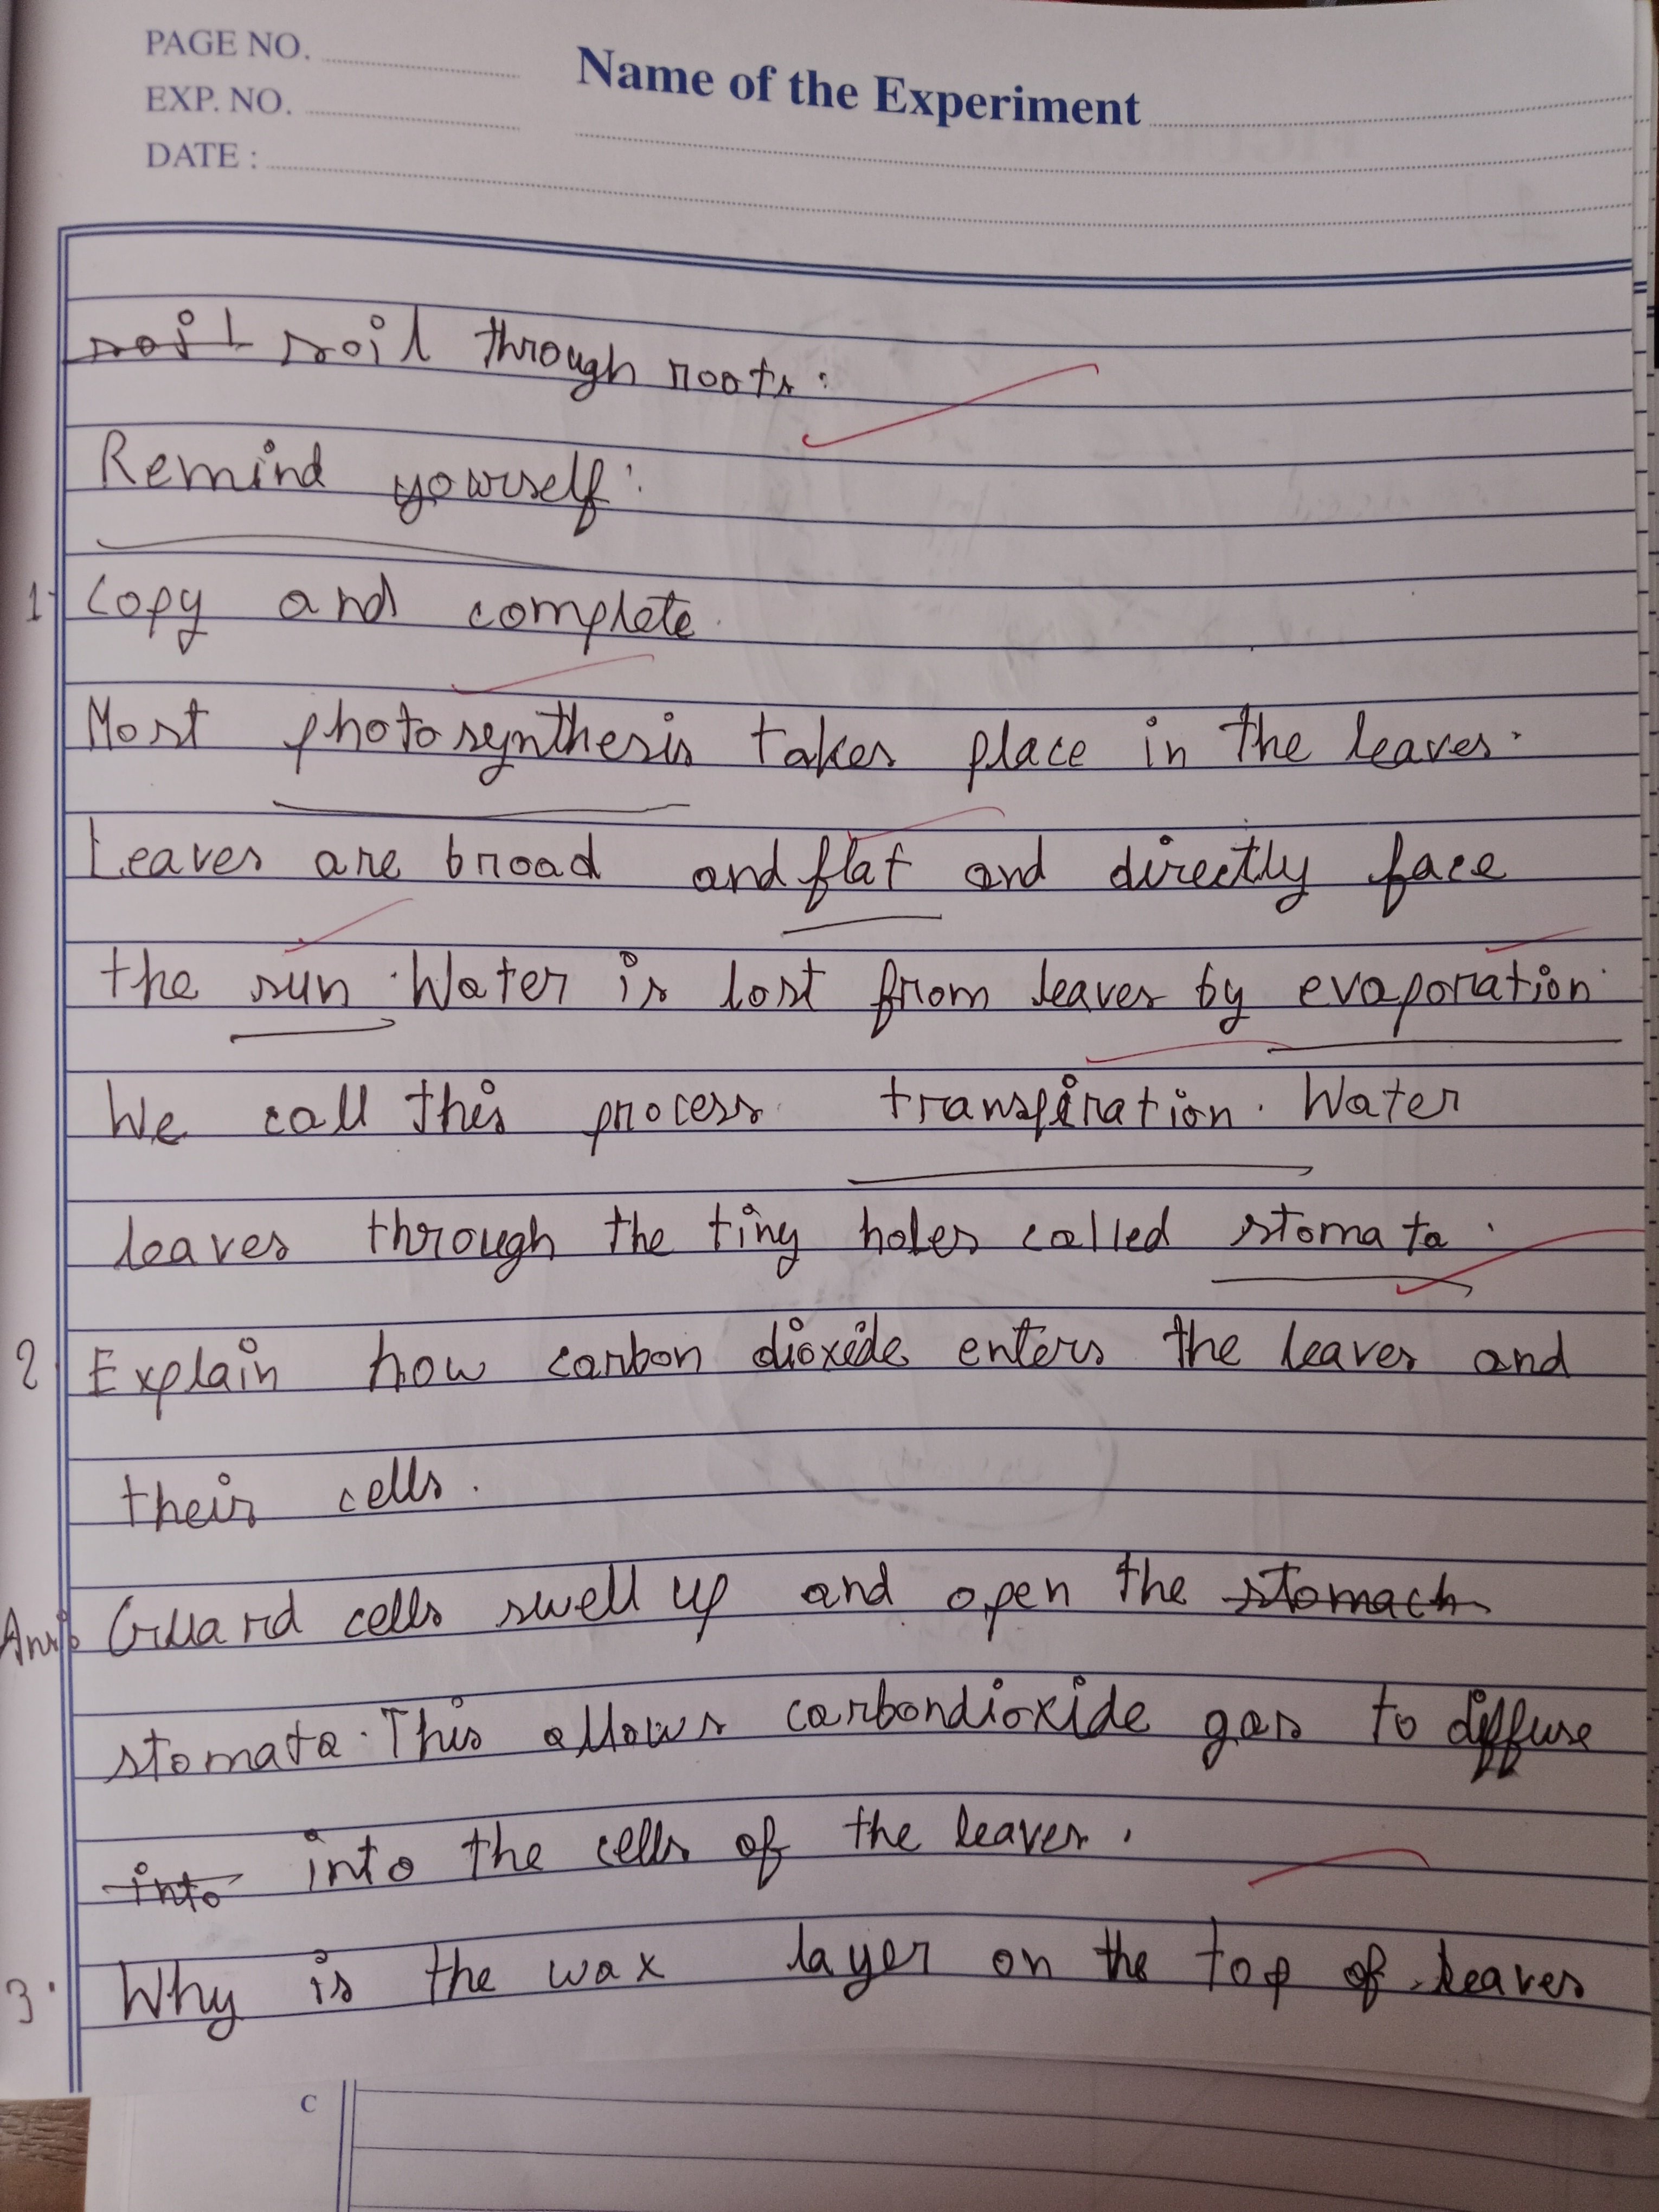 PAGE NO.
EXP. NO.
DATE :
Name of the Experiment
soil soil through roots.
Remind yourself:
1. Copy and complete.
Most photosynthesis takes place in the leaves.
Leaves are broad and flat and directly face
the sun. Water is lost from leaves by evaporation.
We call this process transpiration. Water
leaves through the tiny holes called stomata.
2. Explain how carbon dioxide enters the leaves and
their cells.
Ans: Guard cells swell up and open the stomach
stomata. This allows carbondioxide gas to diffuse
into into the cells of the leaves.
3. Why is the wax layer on the top of leaves
C